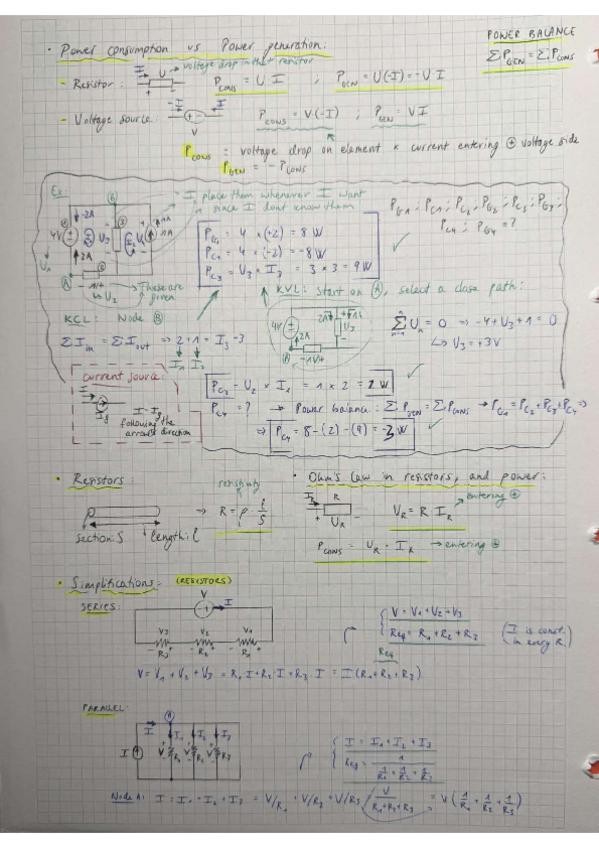 POWER BALANCE
Σ P_GEN = Σ P_CONS
• Power consumption vs Power generation:
voltage drop in that resistor
- Resistor: P_CONS = U · I ; P_GEN = U(-I) = -U·I
- Voltage source: P_CONS = V(-I) ; P_GEN = V I
P_CONS = voltage drop on element × current entering ⊕ voltage side
P_GEN = - P_CONS
Ex:
I place them whenever I want
since I dont know them
P_G1 = 4 × (+2) = 8 W
P_C1 = 4 × (-2) = -8 W
P_C3 = U3 × I3 = 3 × 3 = 9 W
These are
given
KVL: Start on Ⓐ, select a close path:
KCL: Node Ⓑ
Σ I_in = Σ I_out ⇒ 2+1 = I3 = 3
-4+U3+1 = 0
↳ U3 = +3V
Current source:
I = Ig
following the
arrow's direction
P_C2 = U2 × I2 = 1 × 2 = 2 W
P_C4 = ? → Power balance: Σ P_GEN = Σ P_CONS → P_G1 = P_C2 + P_C3 + P_C4 ⇒
⇒ P_C4 = 8 - (2) - (9) = -3 W
• Resistors:
resistivity
⇒ R = ρ · l/S
section: S length: l
• Ohm's Law in resistors, and power:
entering ⊕
V_R = R I_R
P_CONS = U_R · I_R → entering ⊕
• Simplifications: (RESISTORS)
SERIES:
V = V1 + V2 + V3
Req = R1 + R2 + R3
(I is const.
in every R.)
Req
V = V1 + V2 + V3 = R1 I + R2 I + R3 · I = I (R1 + R2 + R3)
PARALLEL:
I = I1 + I2 + I3
Req = 1/(1/R1 + 1/R2 + 1/R3)
Node A: I = I1 + I2 + I3 = V/R1 + V/R2 + V/R3 = V (1/R1 + 1/R2 + 1/R3)